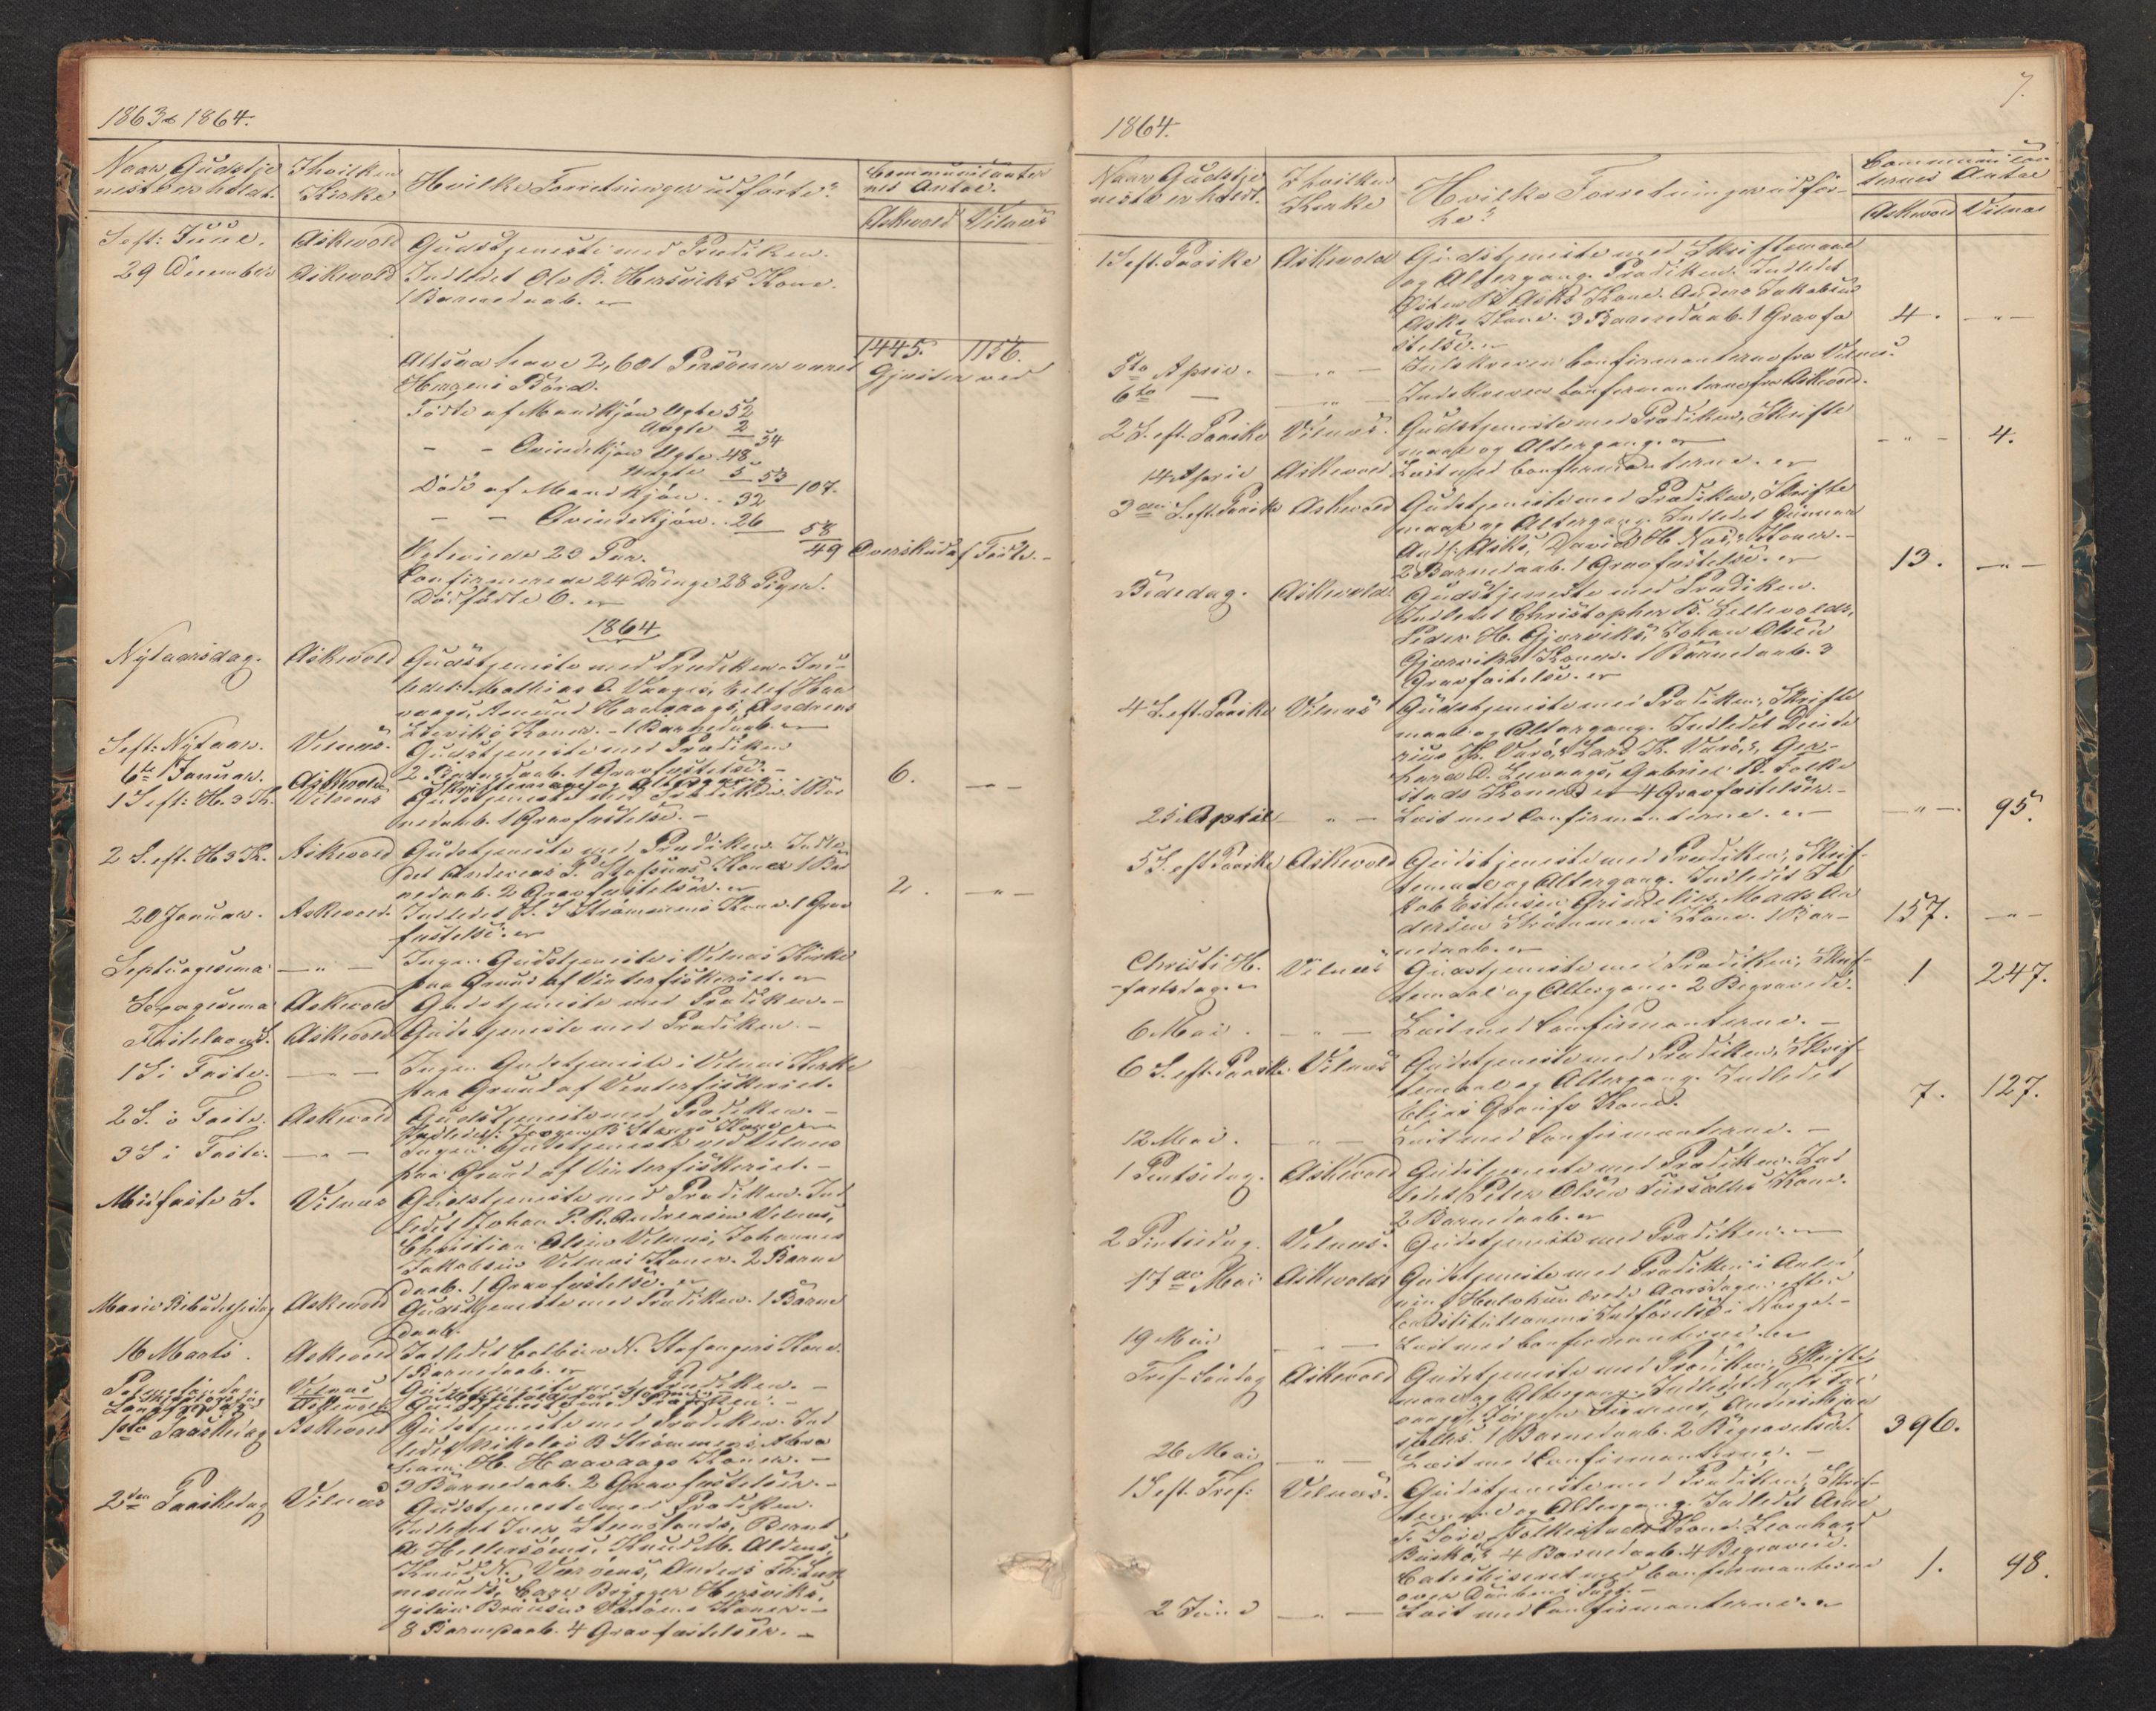 1863 & 1864.
Naar Gudstje I hvilken Hvilke Forretninger udførte? Communicanter
neste er holdt. Kirke nes Antal.
Askevold Vilnæs
S. eft: Juul. Askevold Gudstjeneste med Prædiken.
29 December Askevold Indledet Ole R. Hersviks Kone.
1 Barnedaab.
1445. 1156.
Altsaa have 2,601 Personer været Gjester ved
Herrens Bord.
Fødte af Mandkjøn Ægte 52
Uægte 2 54
- - Qvindekjøn Ægte 48
Uægte 5 53 107.
Døde af Mandkjøn 32
- - Qvindekjøn 26 58
49 Overskud af Fødte.
Ægteviede 20 Par.
Confirmerede 24 Drenge 28 Piger.
Dødfødte 6.
1864
Nytaarsdag. Askevold Gudstjeneste med Prædiken. Ind-
ledet: Mathias O. Vaages,
Amund Haavaags, Andreas
Koner. 1 Barnedaab.
S. eft: Nytaar. Vilnæs. Gudstjeneste med Prædiken
2 Barnedaab. 1 Gravfæstelse.
6te Januar. Askevold Skriftemaal og Altergang. 6. - " -
1 S. eft: H. 3 K. Vilnæs Gudstjeneste med Prædiken 1 Bar
nedaab. 1 Gravfæstelse.
2 S. eft. H 3 K. Askevold Gudstjeneste med Prædiken. Indle
det Andreas P. Kone 1 Bar
nedaab. 2 Gravfæstelser. 2. - " -
20 Januar. Askevold. Indledet Strømmens Kone. 1 Grav
fæstelse.
Septuagesima - " - Ingen Gudstjeneste i Vilnæs Kirke
paa Grund af Vinterfiskeriet.
Sexagesima Askevold Gudstjeneste med Prædiken.
Fastelavns S. Askevold Gudstjeneste med Prædiken.
1 S i Faste. - " - Ingen Gudstjeneste i Vilnæs Kirke
paa Grund af Vinterfiskeriet.
2 S. i Faste. Askevold Gudstjeneste med Prædiken.
Indledet: Kone
3 S i Faste. - " - Ingen Gudstjeneste ved Vilnæs
paa Grund af Vinterfiskeriet.
Midfaste S. Vilnæs Gudstjeneste med Prædiken. Ind
ledet Johan P. R. Andreasen Vilnæs,
Christian Olsen Vilnæs, Johannes
Jakobsen Vilnæs Koner. 2 Barne
daab. 1 Gravfæstelse.
Mariæ Bebudelsesdag Askevold Gudstjeneste med Prædiken. 1 Barne
daab.
16 Marts. Askevold Indledet N. Stafangers Kone.
1 Barnedaab.
Palmesøndag Vilnæs Gudstjeneste med Prædiken.
Skjærtorsdag
Langfredag Gudstjeneste med Prædiken.
1ste Paaskedag Askevold Gudstjeneste med Prædiken. Ind
ledet Nikolai B Strømmens, Abra
ham H. Haavaags Koner.
3 Barnedaab. 2 Gravfæstelser.
2den Paaskedag Vilnæs Gudstjeneste med Prædiken.
Indledet Iver Steenslands, Bernt
A Hellersøens, Knud M. Aldens,
Knud N. Værøens, Anders
Brygger Hersviks,
Koner.
8 Barnedaab. 4 Gravfæstelser.
7.
1864.
Naar Gudstje I hvilken Hvilke Forretninger udfør- Communican
neste er holdt. Kirke te? ternes Antal
Askevold Vilnæs
1 S. eft. Paaske Askevold Gudstjeneste med Skriftemaal
og Altergang. Prædiken. Indledet
Asks Kone. Anders Jakobsen
Asks Kone. 3 Barnedaab. 1 Gravfæ 4. - " -
stelse.
5te April. - " - Indskreven Confirmanterne fra Vilnæs.
6te - - " - Indskreven Confirmanterne fra Askevold.
2 S. eft. Paaske Vilnæs. Gudstjeneste med Prædiken, Skrifte
maal og Altergang. - " - 4.
14 April Askevold Læst med Confirmanterne.
3die S. eft. Paaske Askevold Gudstjeneste med Prædiken, Skrifte
maal og Altergang. Indledet Gunnar
Asks, David H. Koner.
2 Barnedaab. 1 Gravfæstelse. 13. - " -
Bededag. Askevold. Gudstjeneste med Prædiken.
Indledet Christopher B. Lillevolds,
Peder H. Gjærviks, Johan Olsen
Gjærviks Koner. 1 Barnedaab. 3
Gravfæstelse.
4 S. eft. Paaske Vilnæs Gudstjeneste med Prædiken, Skrifte
maal og Altergang. Indledet
Værø, Lars K. Værø, Ger-
hard Gabriel Folke
stads Koner 4 Gravfæstelser.
25 April - " - Læst med Confirmanterne. - " - 95.
5 S. eft Paaske Askevold Gudstjeneste med Prædiken, Skrif-
temaal og Altergang. Indledet Ja
kob Mads An
dersen Strømmens Kone. 1 Bar- 157. - " -
nedaab.
Christi H. Vilnæs Gudstjeneste med Prædiken, Skrif-
fartsdag. temaal og Altergang 2 Begravede. 1 247.
6 Mai. - " - Læst med Confirmanterne.
6 S. eft. Paaske. Vilnæs Gudstjeneste med Prædiken, Skrif-
temaal og Altergang. Indledet
Elias Kone. 7. 127.
12 Mai. - " - Læst med Confirmanterne.
1 Pintsedag. Askevold Gudstjeneste med Prædiken. Ind
ledet Peter Olsen Kone.
2 Barnedaab.
2 Pintsedag. Vilnæs. Gudstjeneste med Prædiken.
17de Mai Askevold Gudstjeneste med Prædiken i Anled
ning Halvhundrede Aarsdagen efter
Constitutionens Indførelse i Norge.
19 Mai - " - Læst med Confirmanterne.
Tref. Søndag Askevold Gudstjeneste med Prædiken, Skrifte
maal og Altergang. Indledet
1 Barnedaab. 2 Begravelser. 396.
26 Mai - " - Læst med Confirmanterne.
1 S. eft. Tref: Vilnæs. Gudstjeneste med Prædiken, Skrif-
temaal og Altergang. Indledet Arne
Folkestads Kone. Leonhard
4 Barnedaab. 4 Begravede.
Catechiseret med Confirmanterne 1. 98.
over Daabens Pagt.
2 Juni - " - Læst med Confirmanterne.